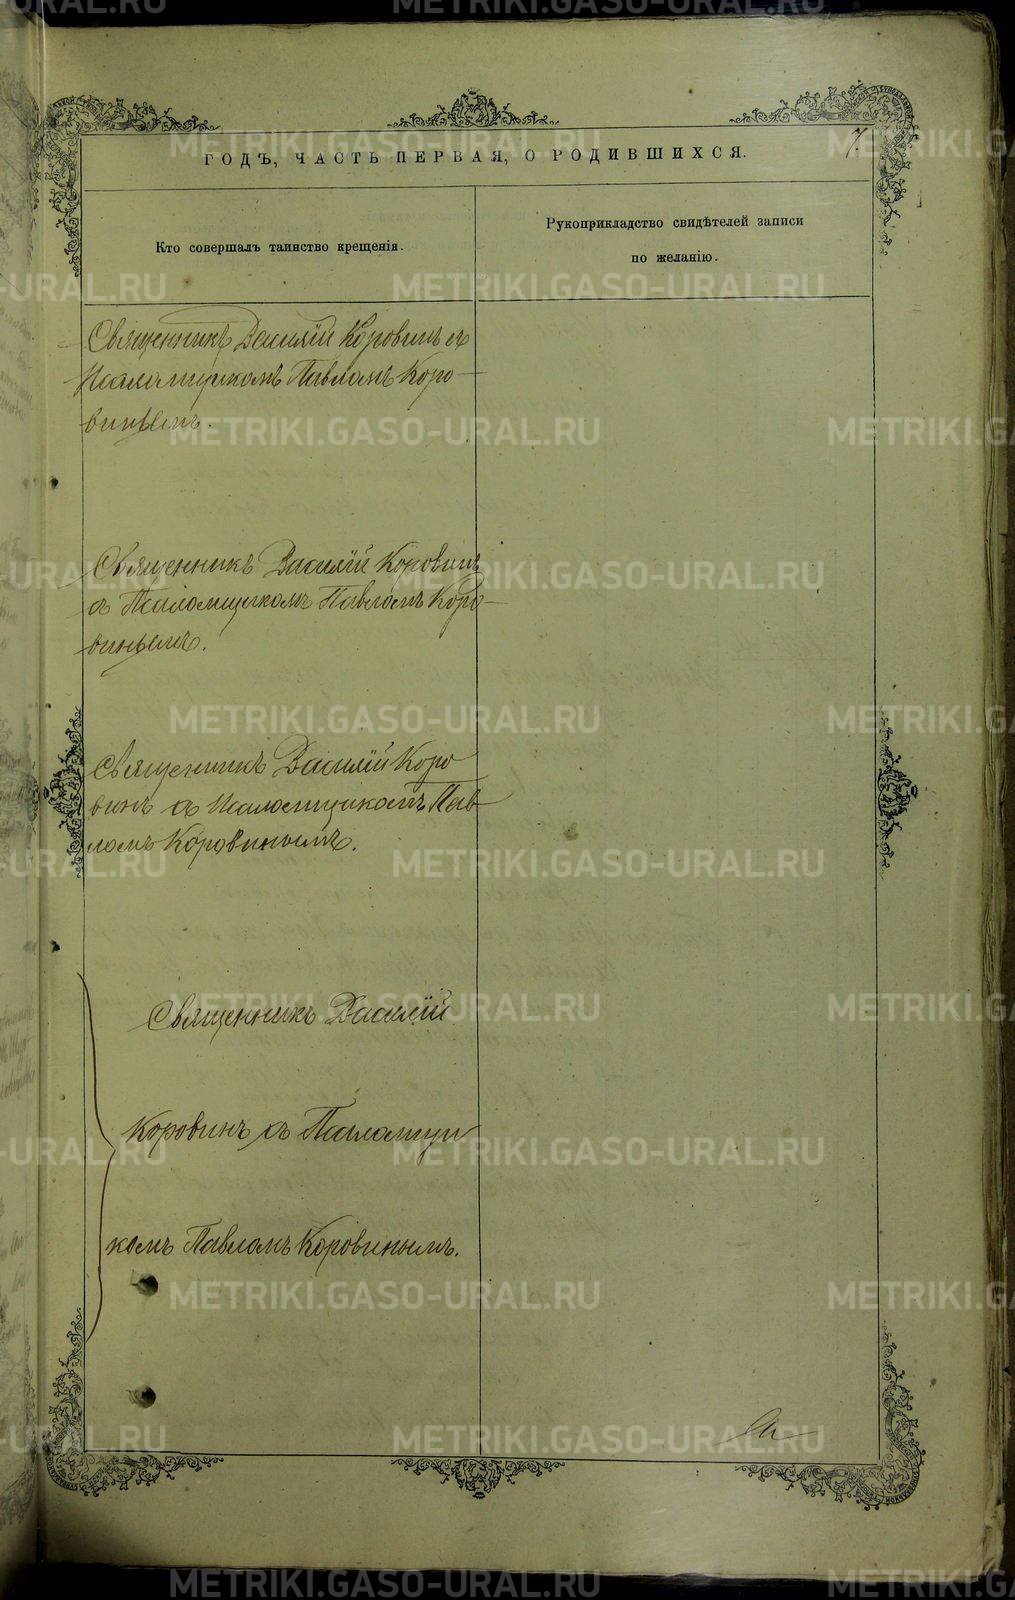 7.
ГОДЪ, ЧАСТЬ ПЕРВАЯ, О РОДИВШИХСЯ.
Кто совершалъ таинство крещенія.
Рукоприкладство свидѣтелей записи
по желанію.
Священникъ Василій Коровинъ съ
Псаломщикомъ Павломъ Коро-
винымъ.
Священникъ Василій Коровинъ
съ Псаломщикомъ Павломъ Коро-
винымъ.
Священникъ Василій Коро
винъ съ Псаломщикомъ Пав-
ломъ Коровинымъ.
Священникъ Василій
Коровинъ съ Псаломщи
комъ Павломъ Коровинымъ.
METRIKI.GASO-URAL.RU